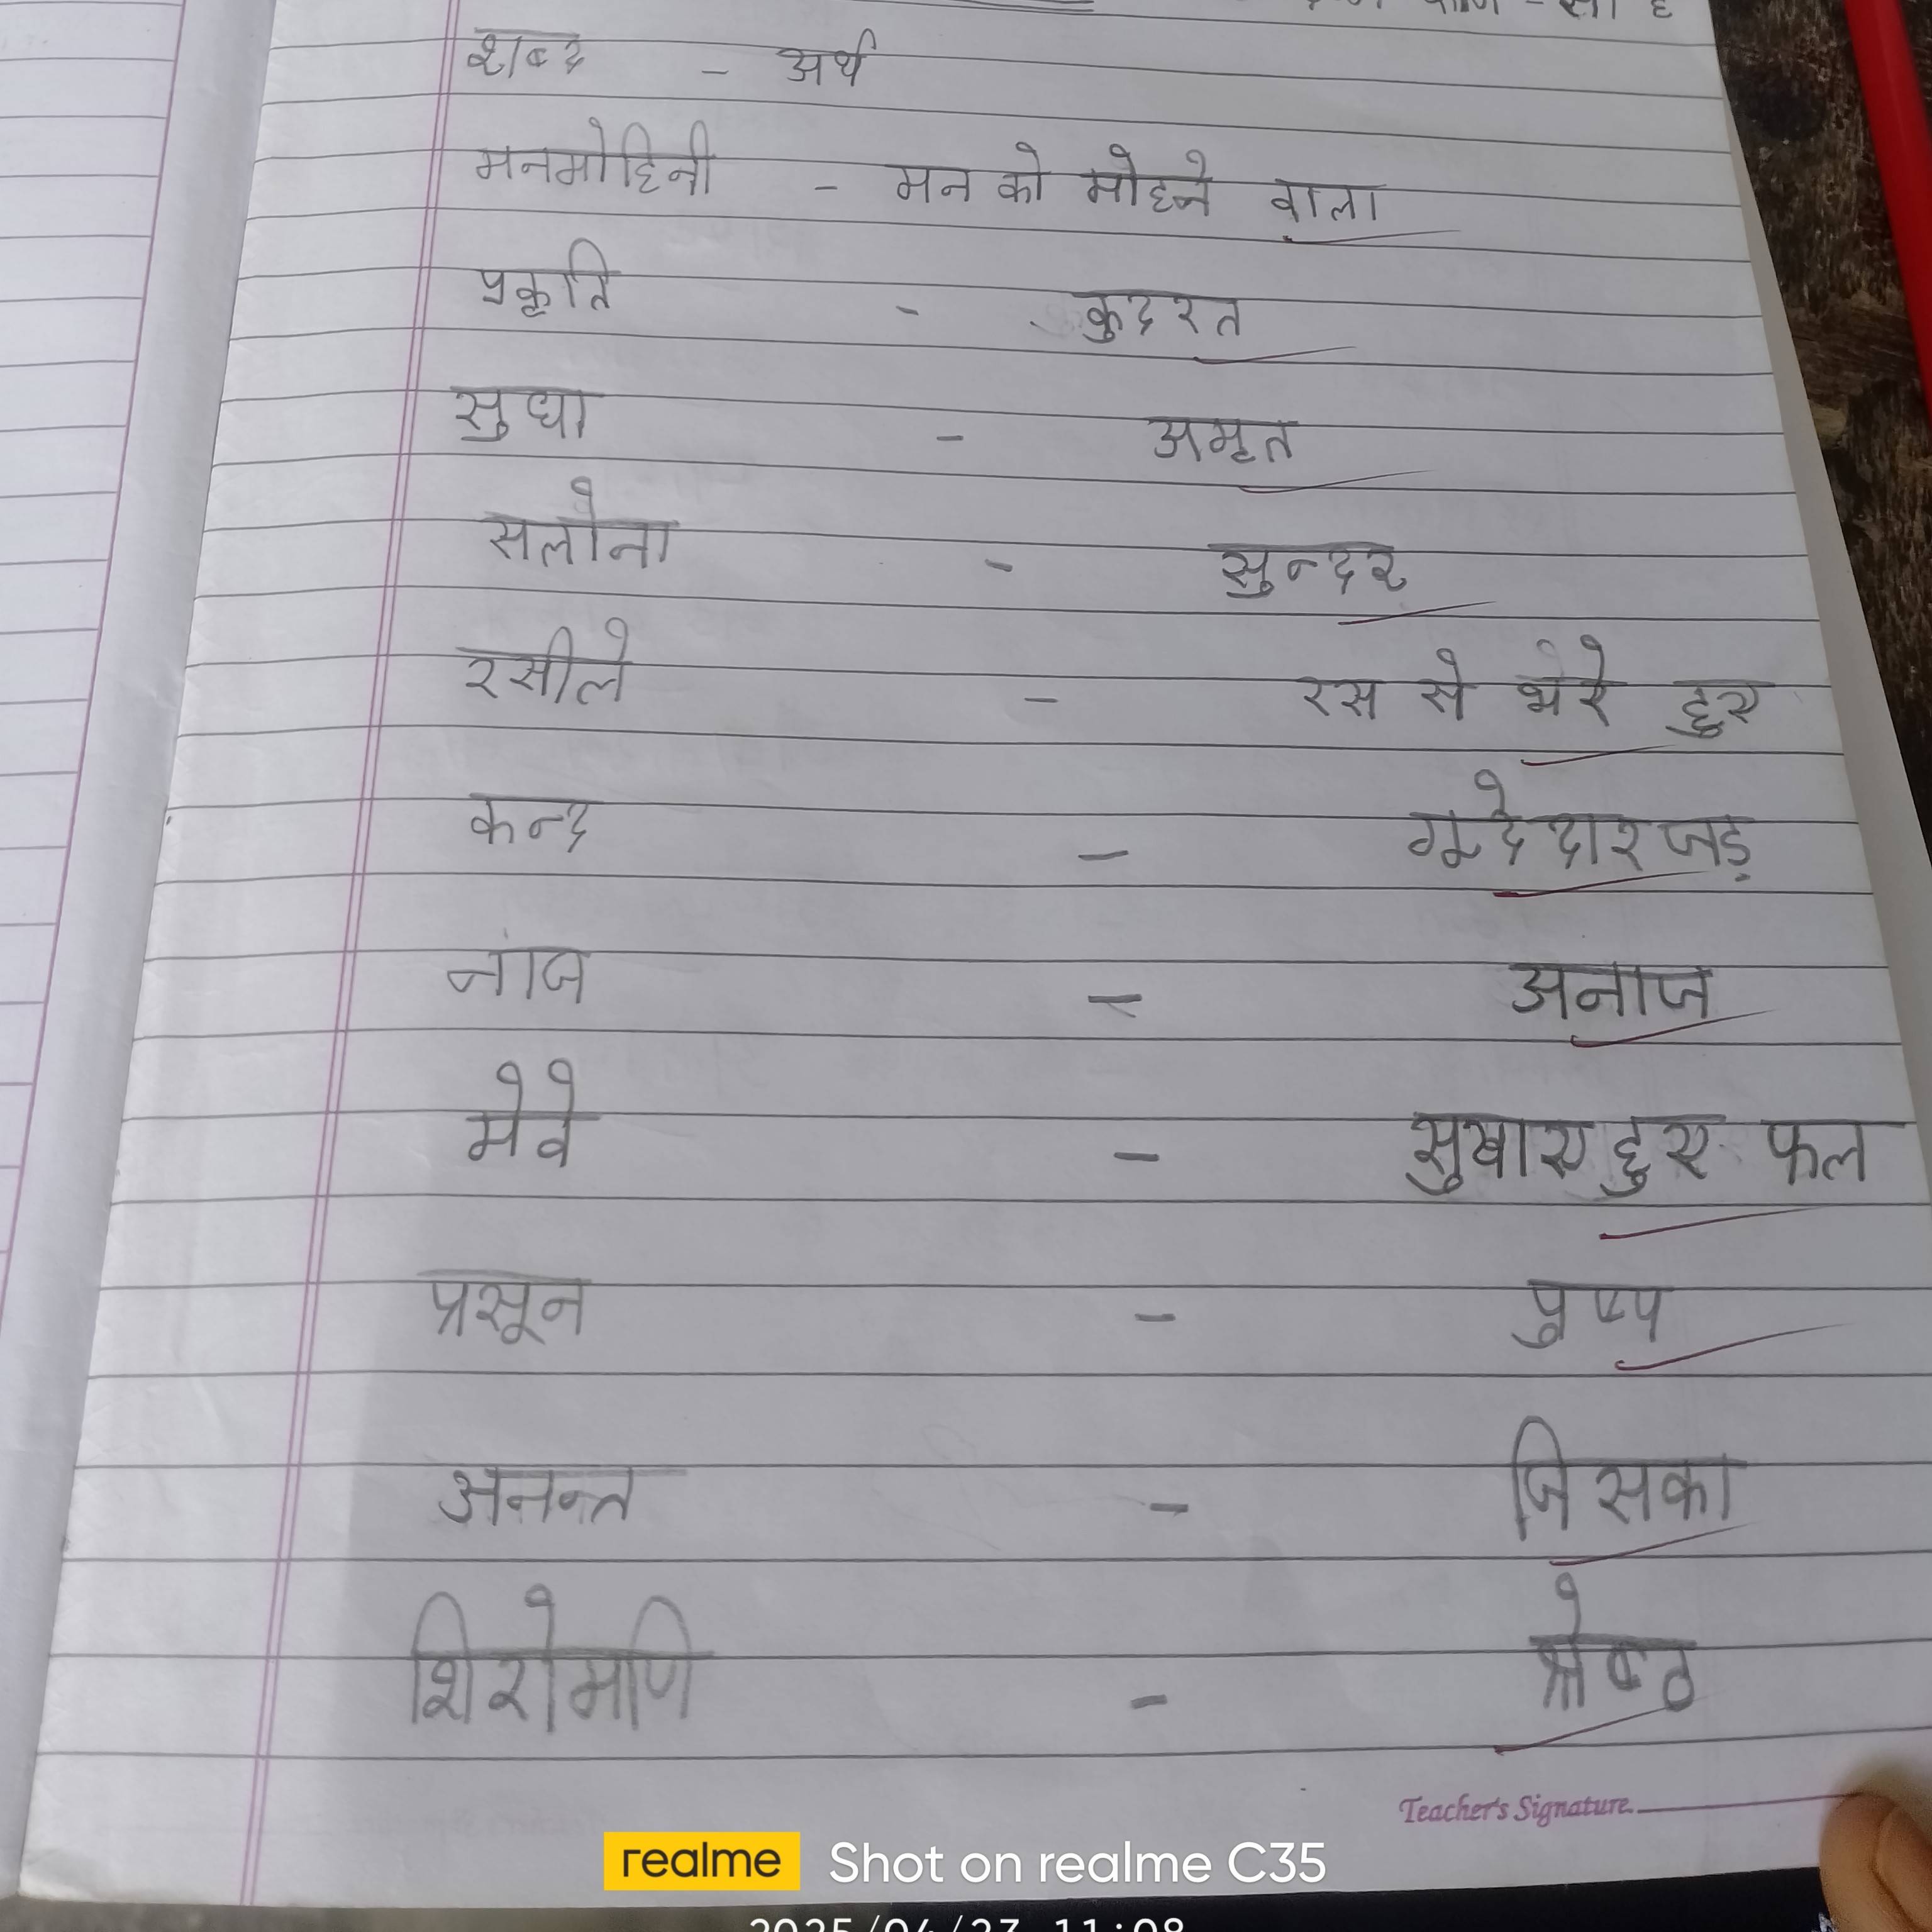 शब्द - अर्थ
मनमोहिनी - मन को मोहने वाला
प्रकृति - कुदरत
सुधा - अमृत
सलोना - सुन्दर
रसीले - रस से भरे हुए
कन्द - गूदेदार जड़
नाज - अनाज
मेवे - सुखाए हुए फल
प्रसून - पुष्प
अनन्त - जिसका
शिरोमणि - श्रेष्ठ
Teacher's Signature
realme Shot on realme C35
2025/04/23 11:08